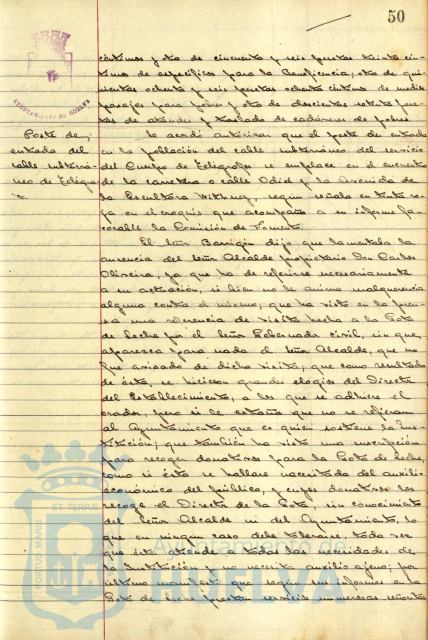 50
AYUNTAMIENTO DE HUELVA
céntimos y otra de cincuenta y seis pesetas treinta cén-
timos de específicos para la Beneficencia; otra de qui-
nientas ochenta y seis pesetas ochenta céntimos de medios
pasajes para pobres y otra de doscientas setenta pese-
tas de ataúdes y traslado de cadáveres de pobres
Poste de
entrada del
cable subterrá-
neo de Telégra-
Se acordó autorizar que el poste de entrada
en la población del cable subterráneo del servicio
del Cuerpo de Telégrafos se emplace en el encuentro
de la carretera o calle Odiel y la Avenida de
la Escultora Withney, según señala en tinta ro-
ja en el croquis que acompaña a su informe fa-
vorable la Comisión de Fomento.
El Señor Barrigón dijo que lamentaba la
ausencia del Señor Alcalde propietario Don Carlos
Oliveira, ya que ha de referirse necesariamente
a su actuación, si bien no le anima malquerencia
alguna contra el mismo; que ha visto en la pren-
sa una referencia de visita hecha a la Gota
de Leche por el Señor Gobernador civil, sin que
aparezca para nada el Señor Alcalde, que no
fue avisado de dicha visita; que como resultado
de ésta, se hicieron grandes elogios del Director
del Establecimiento, a los que se adhiere el
orador, pero si le extraña que no se refieran
al Ayuntamiento que es quien sostiene la Ins-
titución; que también ha visto una suscripción
para recoger donativos para la Gota de Leche,
como si ésta se hallase necesitada del auxilio
económico del público, y cuyos donativos los
recoge el Director de la Gota, sin conocimiento
del Señor Alcalde ni del Ayuntamiento, lo
que en ningún caso debe tolerarse toda vez
que éste atiende a todas las necesidades de
la Institución y no necesita auxilio ajeno; por
último manifestó que según sus informes en la
Gota de Leche prestan servicios numerosas señoritas
PORTUS MARIS
ET TERRAE
Ayuntamiento de
HUELVA